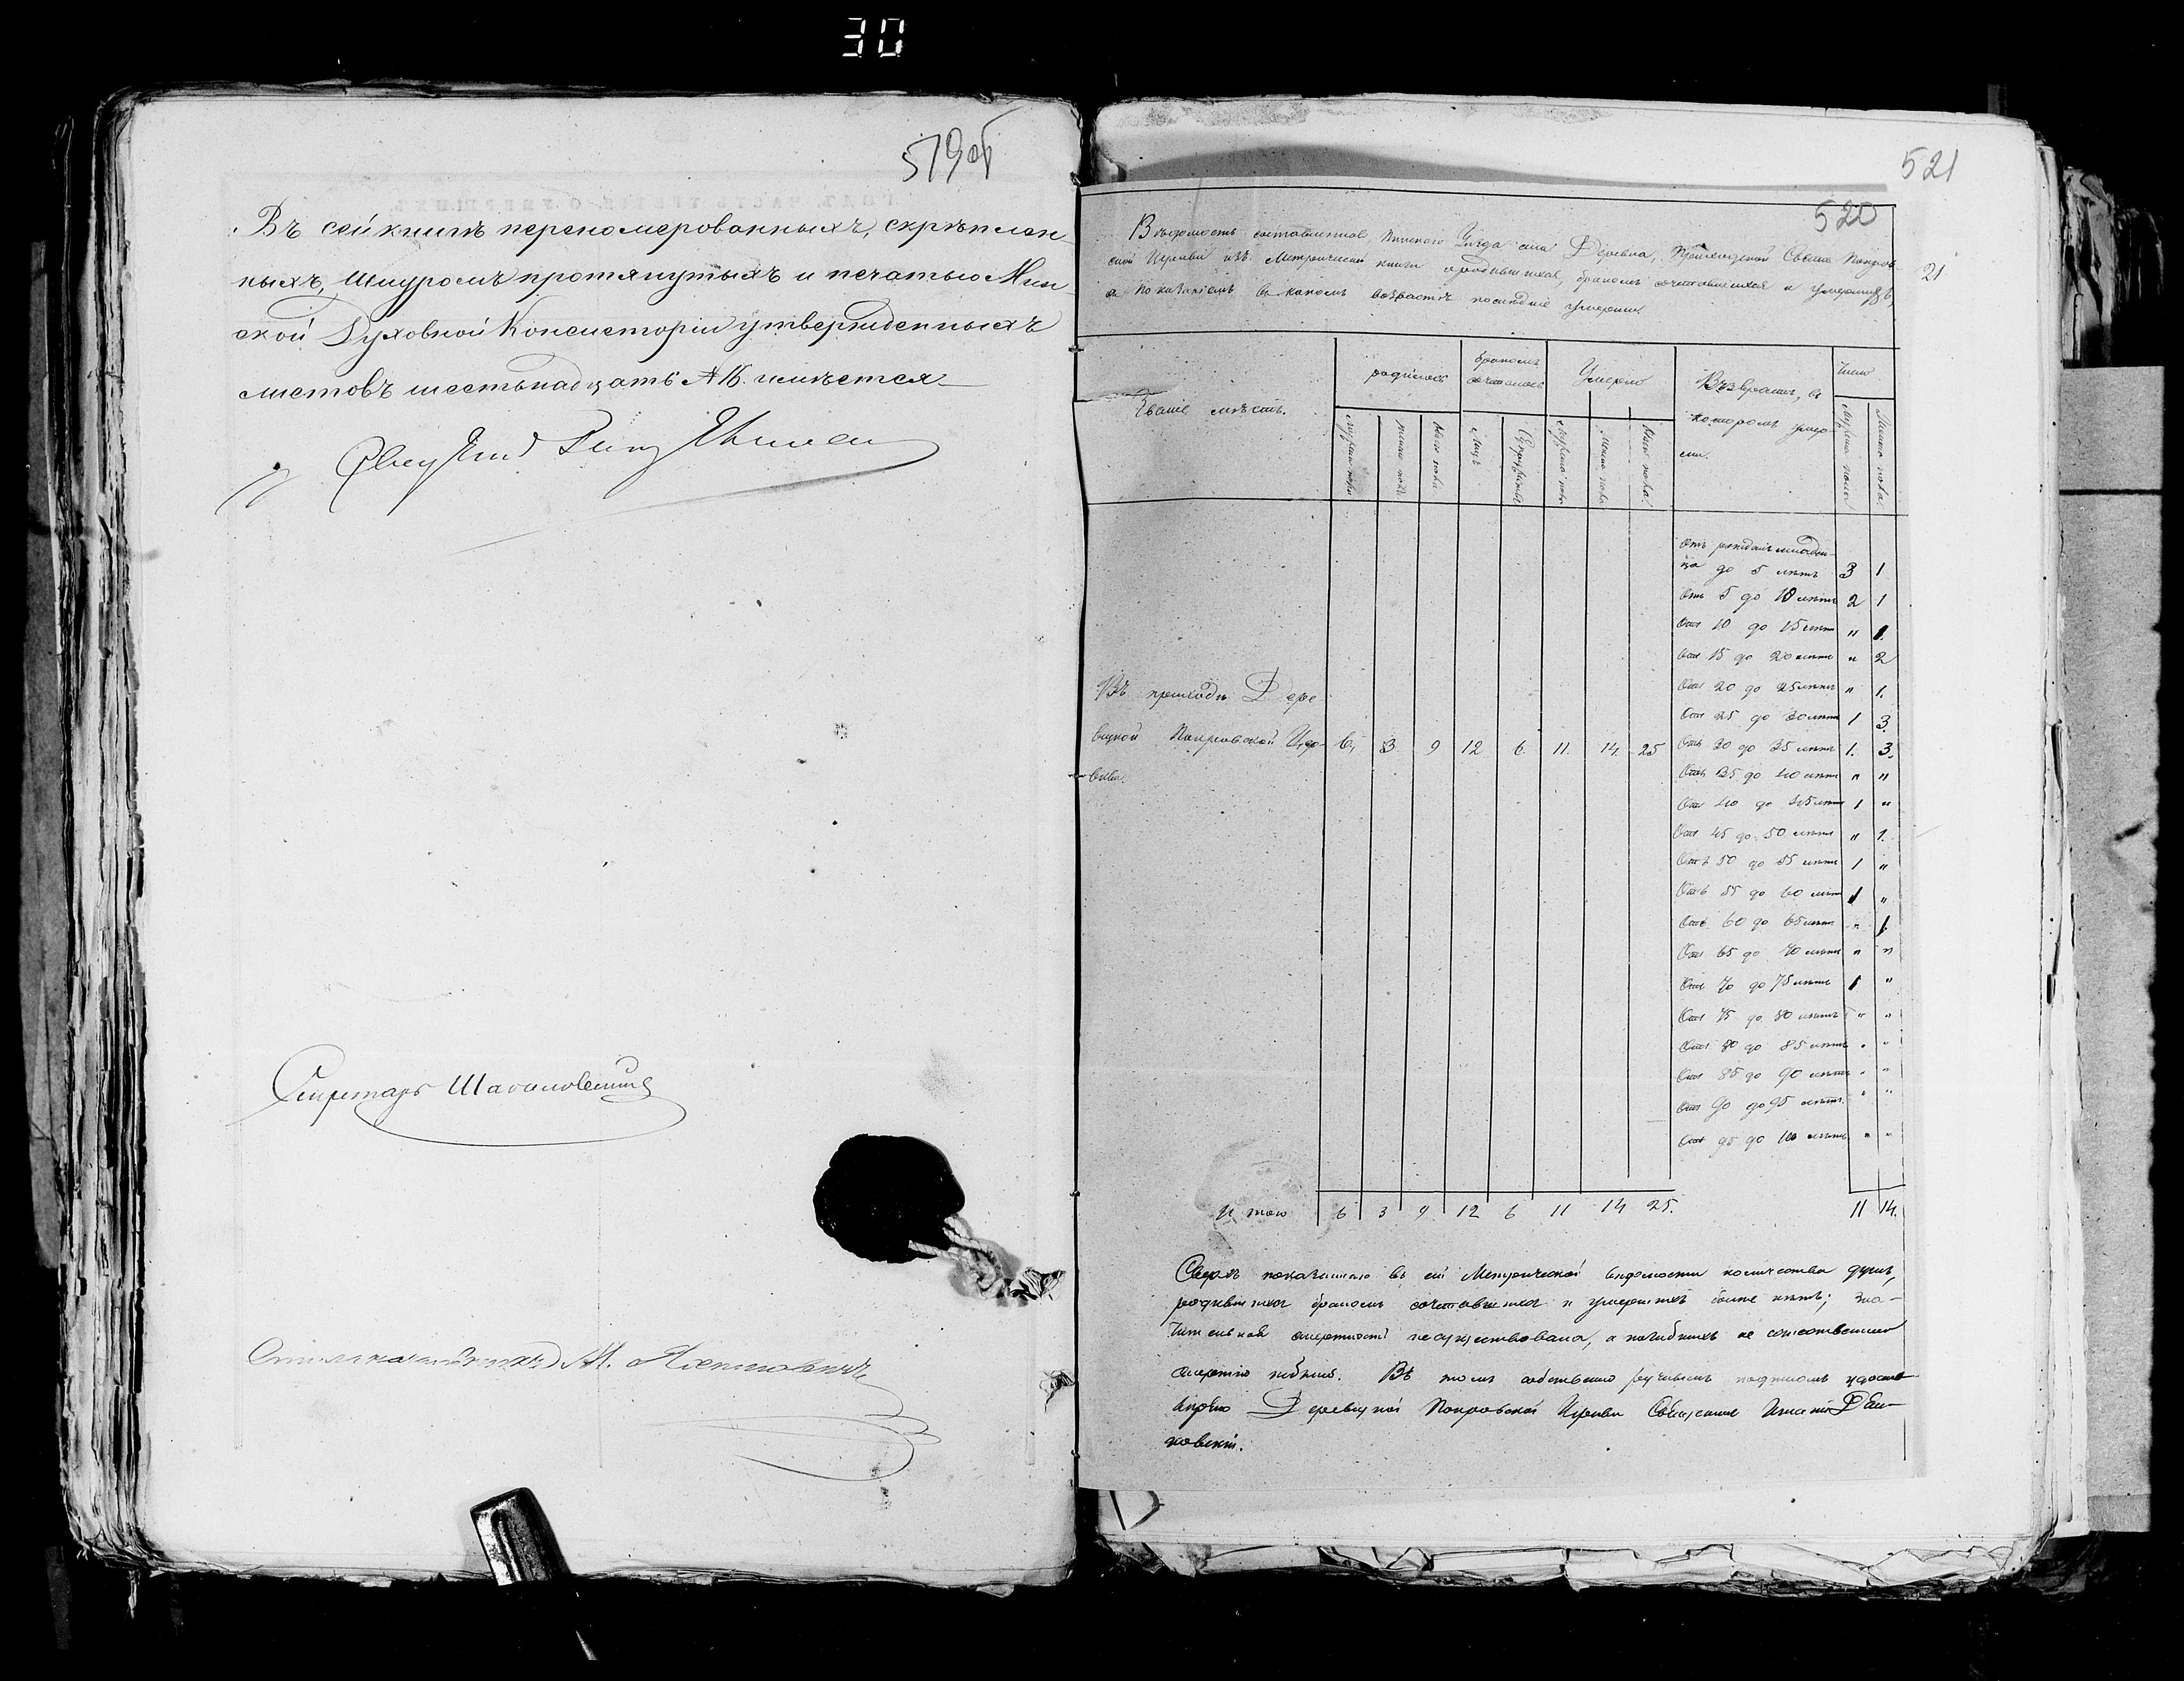 30
579об
Въ сей книгѣ переномерованныхъ, скрѣплен-
ныхъ, шнуромъ протянутыхъ и печатью Мин-
ской Духовной Консисторіи утвержденныхъ
листовъ шестьнадцать имѣется
Секретарь
Столоначальникъ М.
521
520
21
Вѣдомость составленная Пинскаго Уѣзда села Деревна, Приходской Свято Покров-
ской Церкви изъ Метрической книги о родившихся, бракомъ сочетавшихся и умершихъ,
съ показаніемъ въ какомъ возрастѣ послѣдніе умерли.
Званіе мѣстъ.
родилось
бракомъ сочеталось
Умерло
Възврастъ, въ
которомъ умер-
ли.
Число
мужеска пола
женска пола
обоего пола
Лицъ
Супружествъ
мужеска пола
женска пола
обоего пола
мужеска пола
женска пола
Отъ рожденія младен-
ца до 5 лѣтъ 3 1
Отъ 5 до 10 лѣтъ 2 1
Отъ 10 до 15 лѣтъ " 1.
Отъ 15 до 20 лѣтъ " 2
Отъ 20 до 25 лѣтъ " 1.
Отъ 25 до 30 лѣтъ 1 3.
Отъ 30 до 35 лѣтъ 1. 3.
Отъ 35 до 40 лѣтъ " "
Отъ 40 до 45 лѣтъ 1 "
Отъ 45 до 50 лѣтъ " 1.
Отъ 50 до 55 лѣтъ 1 "
Отъ 55 до 60 лѣтъ 1 "
Отъ 60 до 65 лѣтъ " 1.
Отъ 65 до 70 лѣтъ " "
Отъ 70 до 75 лѣтъ 1 "
Отъ 75 до 80 лѣтъ " "
Отъ 80 до 85 лѣтъ " "
Отъ 85 до 90 лѣтъ " "
Отъ 90 до 95 лѣтъ " "
Отъ 95 до 100 лѣтъ " "
Въ приходѣ Дере-
вцкой Покровской Цер-
кви. 6, 3 9 12 6. 11. 14. 25
Итого 6 3 9 12 6 11 14 25. 11 14.
Сверхъ показаннаго въ сей Метрической вѣдомости количества душъ,
родившихся бракомъ сочетавшихся и умершихъ болѣе нѣтъ; зна-
чительной смертности несуществовало, а погибшихъ не
смертію небыло. Въ томъ собственно ручнымъ подписомъ удосто-
вѣряю Деревцкой Покровской Церкви Священникъ Игнатій
новскій.